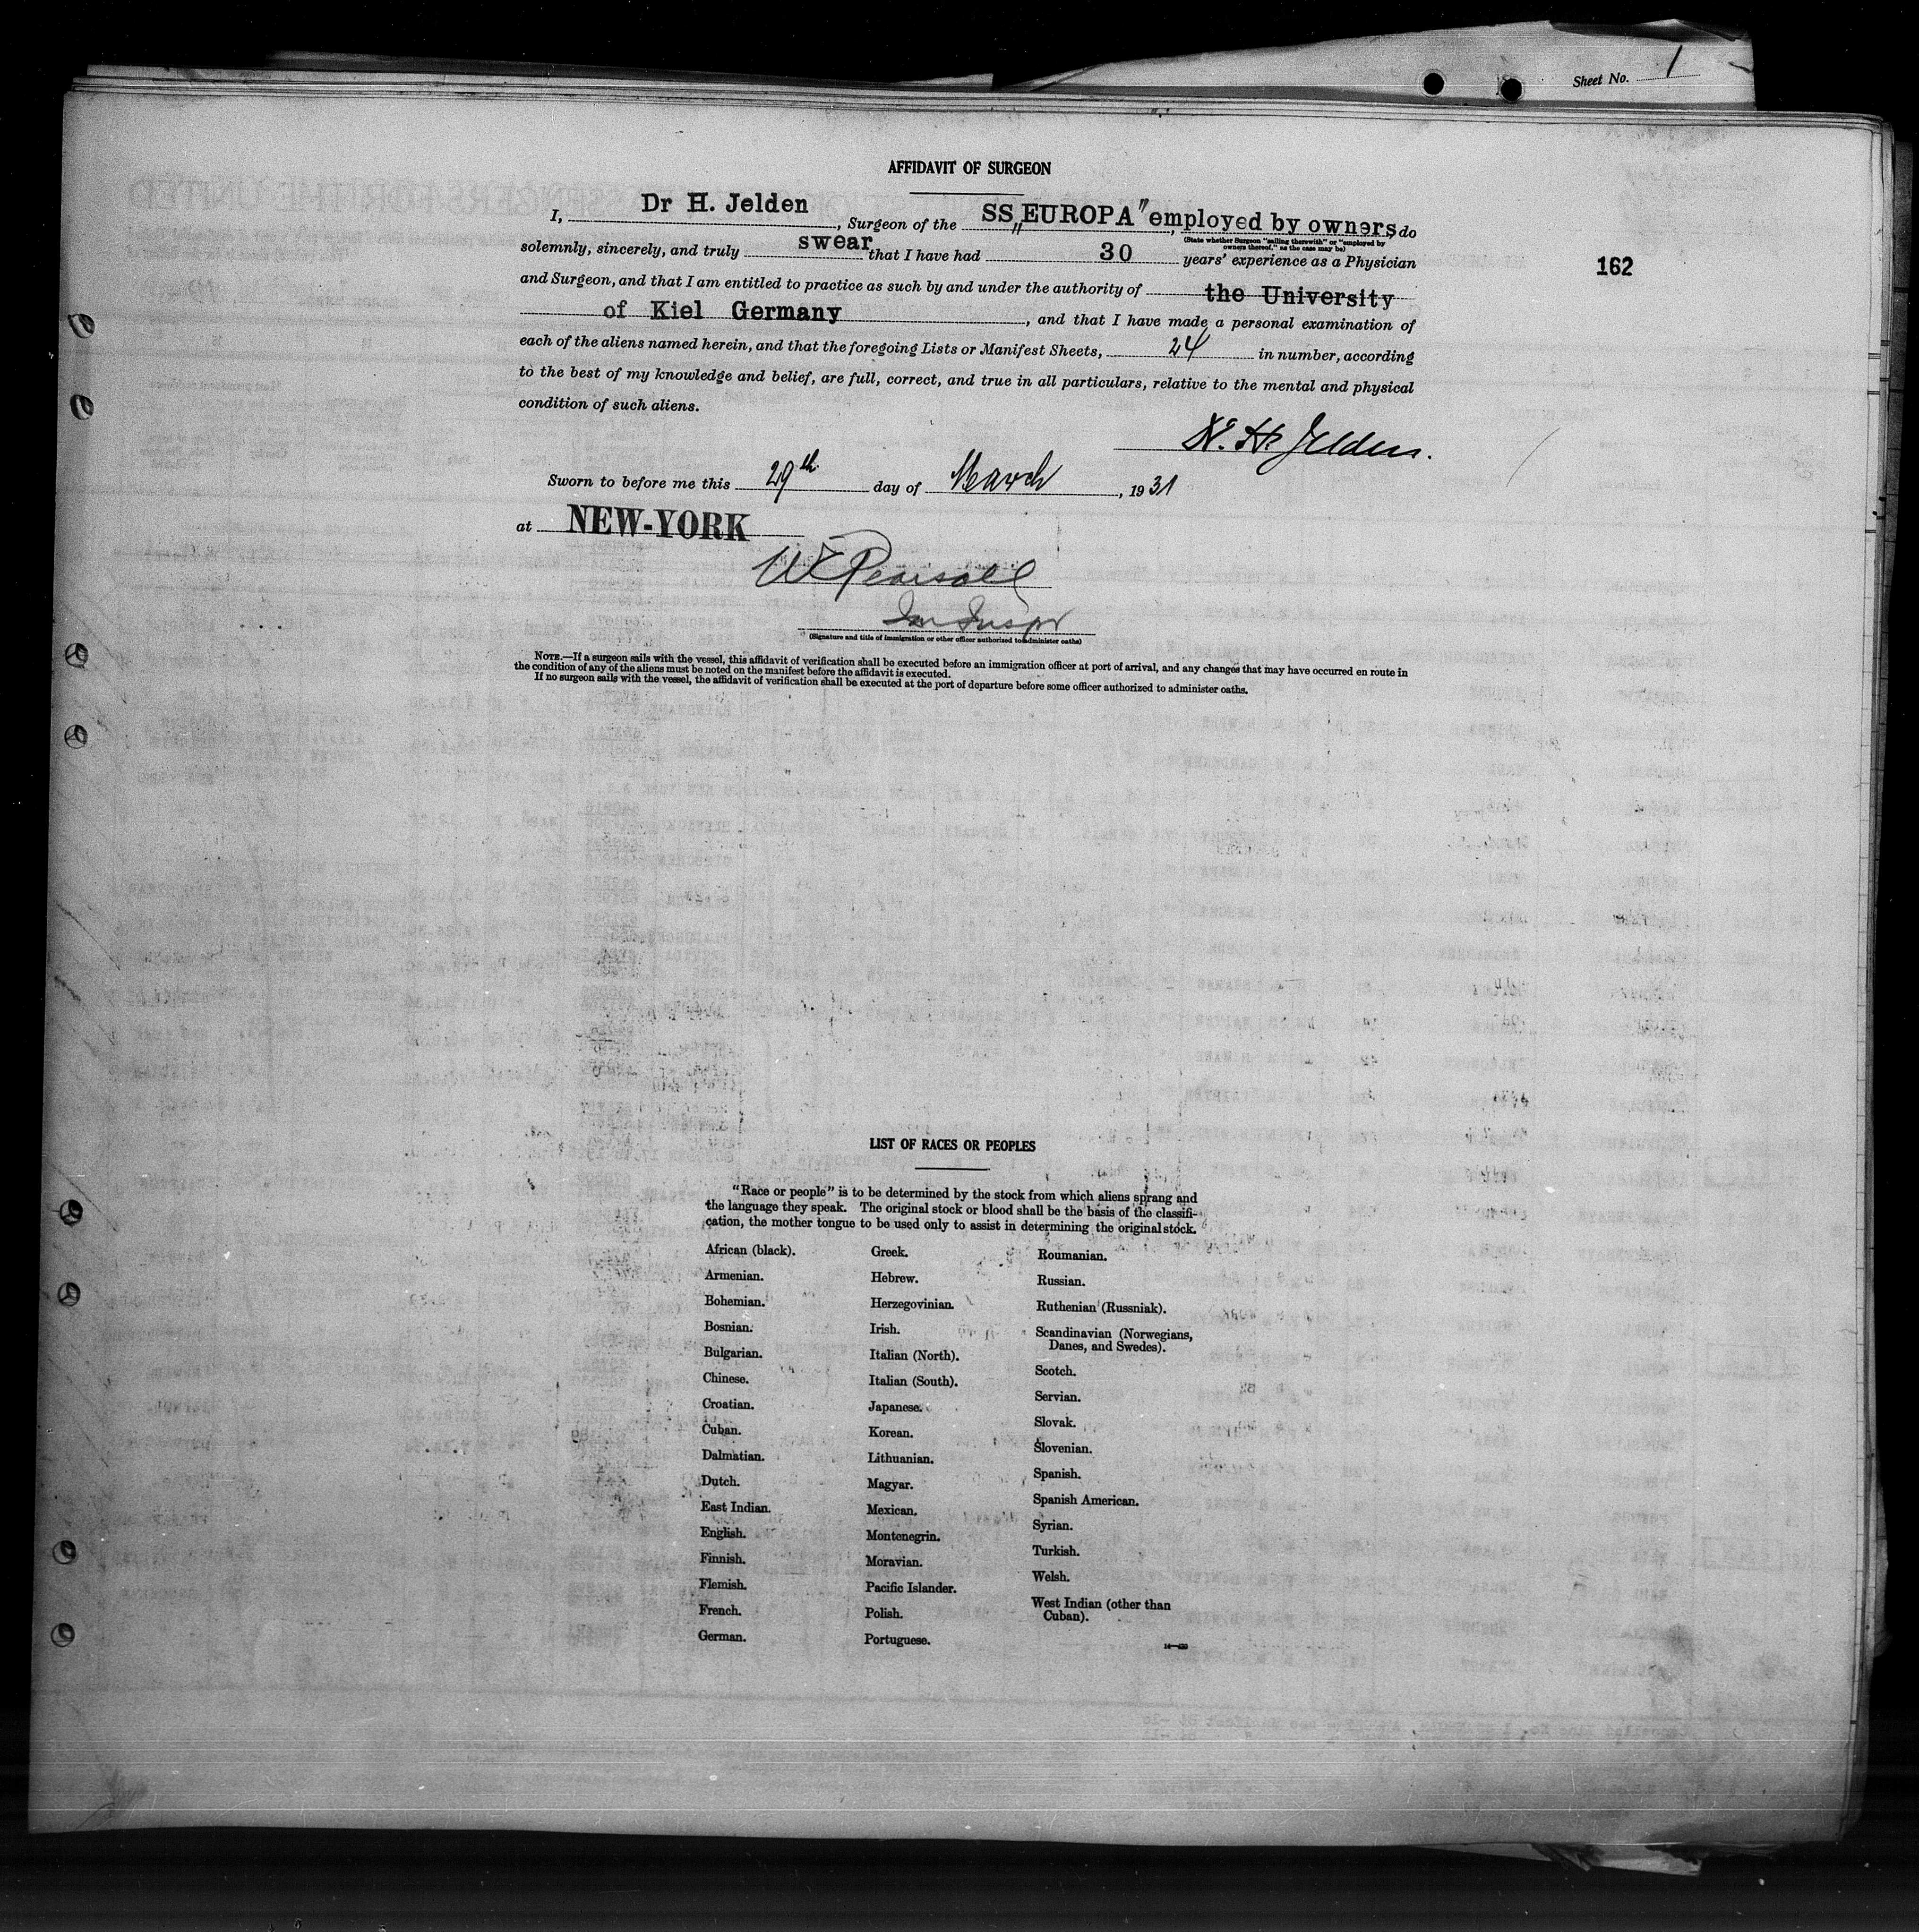 Sheet No. 1
AFFIDAVIT OF SURGEON
I, Dr H. Jelden, Surgeon of the SS „EUROPA" employed by owners, do
(State whether Surgeon "sailing therewith" or "employed by
owners thereof," as the case may be)
solemnly, sincerely, and truly swear that I have had 30 years' experience as a Physician
162
and Surgeon, and that I am entitled to practice as such by and under the authority of the University
of Kiel Germany, and that I have made a personal examination of
each of the aliens named herein, and that the foregoing Lists or Manifest Sheets, 24 in number, according
to the best of my knowledge and belief, are full, correct, and true in all particulars, relative to the mental and physical
condition of such aliens.
H. Jelden.
Sworn to before me this 29th day of March, 1931
at NEW-YORK
W Pearsall
Im Inspr
(Signature and title of immigration or other officer authorized to administer oaths)
NOTE.—If a surgeon sails with the vessel, this affidavit of verification shall be executed before an immigration officer at port of arrival, and any changes that may have occurred en route in
the condition of any of the aliens must be noted on the manifest before the affidavit is executed.
If no surgeon sails with the vessel, the affidavit of verification shall be executed at the port of departure before some officer authorized to administer oaths.
LIST OF RACES OR PEOPLES
"Race or people" is to be determined by the stock from which aliens sprang and
the language they speak. The original stock or blood shall be the basis of the classifi-
cation, the mother tongue to be used only to assist in determining the original stock.
African (black).
Armenian.
Bohemian.
Bosnian.
Bulgarian.
Chinese.
Croatian.
Cuban.
Dalmatian.
Dutch.
East Indian.
English.
Finnish.
Flemish.
French.
German.
Greek.
Hebrew.
Herzegovinian.
Irish.
Italian (North).
Italian (South).
Japanese.
Korean.
Lithuanian.
Magyar.
Mexican.
Montenegrin.
Moravian.
Pacific Islander.
Polish.
Portuguese.
Roumanian.
Russian.
Ruthenian (Russniak).
Scandinavian (Norwegians,
Danes, and Swedes).
Scotch.
Servian.
Slovak.
Slovenian.
Spanish.
Spanish American.
Syrian.
Turkish.
Welsh.
West Indian (other than
Cuban).